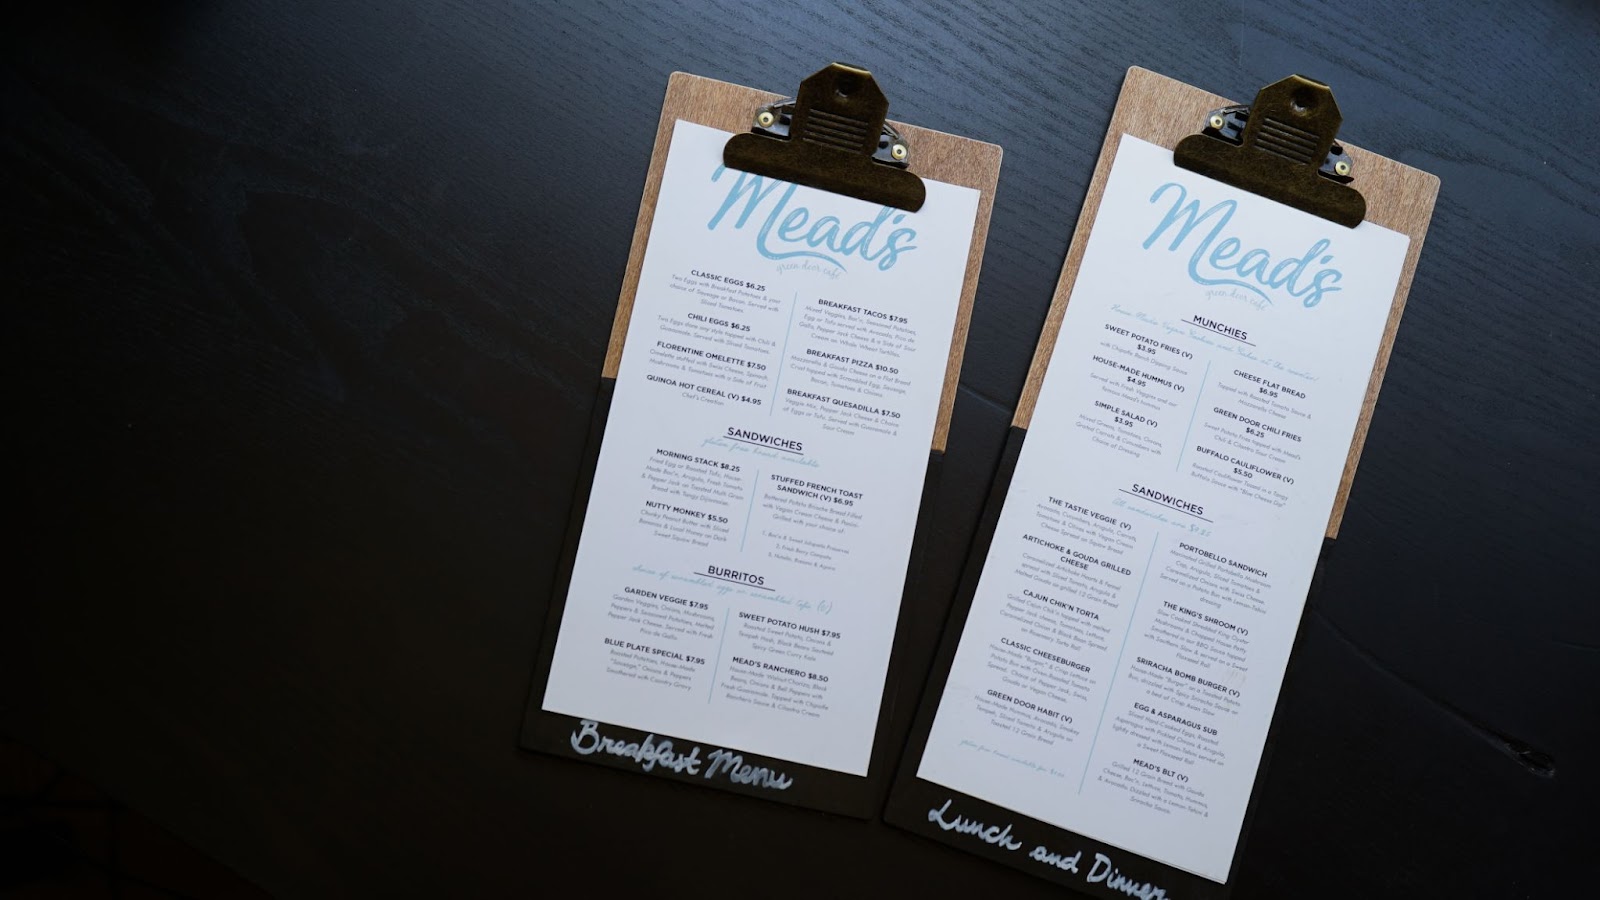 Mead's
green door cafe
CLASSIC EGGS $6.25
Two Eggs with Breakfast Potatoes & your
choice of Sausage or Bacon, Served with
Sliced Tomatoes
CHILI EGGS $6.25
Two Eggs done any style topped with Chili &
Guacamole, Served with Sliced Tomatoes
FLORENTINE OMELETTE $7.50
Omelette stuffed with Swiss Cheese, Spinach,
Mushrooms & Tomatoes with a Side of Fruit
QUINOA HOT CEREAL (V) $4.95
Chef's Creation
BREAKFAST TACOS $7.95
Mixed Veggies, Bac'n, Seasoned Potatoes,
Egg or Tofu served with Avocado, Pico de
Gallo, Pepper Jack Cheese & a Side of Sour
Cream on Whole Wheat Tortillas
BREAKFAST PIZZA $10.50
Mozzarella & Gouda Cheese on a Flat Bread
Crust topped with Scrambled Egg, Sausage,
Bacon, Tomatoes & Onions
BREAKFAST QUESADILLA $7.50
Veggie Mix, Pepper Jack Cheese & Choice
of Eggs or Tofu, Served with Guacamole &
Sour Cream
SANDWICHES
gluten free bread available
MORNING STACK $8.25
Fried Egg or Roasted Tofu, House-
Made Bac'n, Arugula, Fresh Tomato
& Pepper Jack on Toasted Multi Grain
Bread with Tangy Dijonnaise
NUTTY MONKEY $5.50
Chunky Peanut Butter with Sliced
Bananas & Local Honey on Dark
Sweet Square Bread
STUFFED FRENCH TOAST
SANDWICH (V) $6.95
Battered Potato Brioche Bread Filled
with Vegan Cream Cheese & Panini-
Grilled with your choice of:
1. Bac'n & Sweet Jalapeño Preserves
2. Fresh Berry Compote
3. Nutella, Banana & Agave
BURRITOS
choice of scrambled eggs or scrambled tofu (V)
GARDEN VEGGIE $7.95
Garden Veggies, Onions, Mushrooms,
Peppers & Seasoned Potatoes, Melted
Pepper Jack Cheese, Served with Fresh
Pico de Gallo
BLUE PLATE SPECIAL $7.95
Roasted Potatoes, House-Made
"Sausage," Onions & Peppers
Smothered with Country Gravy
SWEET POTATO HUSH $7.95
Roasted Sweet Potato, Onions &
Tempeh Hash, Black Beans Sauteed
Spicy Green Curry Kale
MEAD'S RANCHERO $8.50
House-Made Walnut Chorizo, Black
Beans, Onions & Bell Peppers with
Fresh Guacamole, Topped with Chipotle
Ranchero Sauce & Cilantro Cream
Breakfast Menu
Mead's
green door cafe
MUNCHIES
House Made Vegan Cookies and Cakes at the counter
SWEET POTATO FRIES (V)
$3.95
with Chipotle Ranch Dipping Sauce
HOUSE-MADE HUMMUS (V)
$4.95
Served with Fresh Veggies and our
SIMPLE SALAD (V)
$3.95
Mixed Greens, Tomatoes, Onions,
Grated Carrots & Cucumbers with
Choice of Dressing
CHEESE FLAT BREAD
$6.95
Topped with Roasted Tomato Sauce &
Mozzarella Cheese
GREEN DOOR CHILI FRIES
$6.25
Sweet Potato Fries topped with Mead's
Chili & Cilantro Sour Cream
BUFFALO CAULIFLOWER (V)
$5.50
Roasted Cauliflower Tossed in a Tangy
Buffalo Sauce with "Blue Cheese Dip"
SANDWICHES
All sandwiches are
THE TASTIE VEGGIE (V)
Avocado, Cucumbers, Arugula, Carrots,
Tomatoes & Olives with Vegan Cream
Cheese Spread on Square Bread
ARTICHOKE & GOUDA GRILLED
CHEESE
Caramelized Artichoke Hearts & Fennel
served with Sliced Tomato, Arugula &
Melted Gouda on grilled 12 Grain Bread
CAJUN CHIK'N TORTA
Grilled Cajun Chik'n topped with melted
Pepper Jack Cheese, Tomatoes, Lettuce,
Caramelized Onion & Black Bean Spread
on Rosemary Torta Roll
CLASSIC CHEESEBURGER
House-Made "Burger" & Crisp Lettuce on
Potato Bun with Oven Roasted Tomato
Spread. Choice of Pepper Jack, Swiss,
Gouda or Vegan Cheese.
GREEN DOOR HABIT (V)
House-Made Hummus, Avocado, Smokey
Tempeh, Sliced Tomato & Arugula on
Toasted 12 Grain Bread
gluten free bread available for
PORTOBELLO SANDWICH
Marinated Grilled Portobello Mushroom
Cap, Arugula, Sliced Tomatoes &
Caramelized Onions with Swiss Cheese,
Served on a Potato Bun with Lemon-Tahini
dressing
THE KING'S SHROOM (V)
Slow Cooked Shredded King Oyster
Mushrooms & Chopped House Patty
Smothered in our BBQ Sauce topped
with Southern Slaw & served on a Sweet
Flaxseed Roll
SRIRACHA BOMB BURGER (V)
House-Made "Burger" on a Toasted Potato
Bun, drizzled with Spicy Sriracha Sauce on
a bed of Crisp Asian Slaw
EGG & ASPARAGUS SUB
Sliced Hard-Cooked Eggs, Roasted
Asparagus with Pickled Onions & Arugula,
lightly dressed with Lemon-Tahini on
a Sweet Flaxseed Roll
MEAD'S BLT (V)
Grilled 12 Grain Bread with Gouda
Cheese, Bac'n, Lettuce, Tomato, Hummus,
& Avocado. Drizzled with a Lemon-Tahini &
Sriracha Sauce
Lunch and Dinner